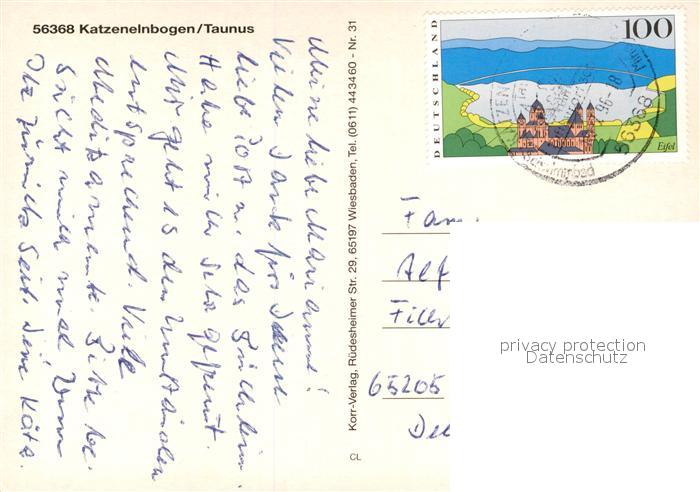 56368 Katzenelnbogen/Taunus
Meine liebe Marianne!
Vielen Dank für Deine
liebe Post u. das Büchlein.
Habe mich sehr gefreut.
Mir geht es den Umständen
entsprechend. Viele
Medikamente. Bitte be-
sucht mich mal wenn
Ihr zurück seit. Deine Käta.
Korr-Verlag, Rüdesheimer Str. 29, 65197 Wiesbaden, Tel. (0611) 443460 - Nr. 31
CL
DEUTSCHLAND
100
Eifel
56368
Fam
Alf
65205
privacy protection
Datenschutz